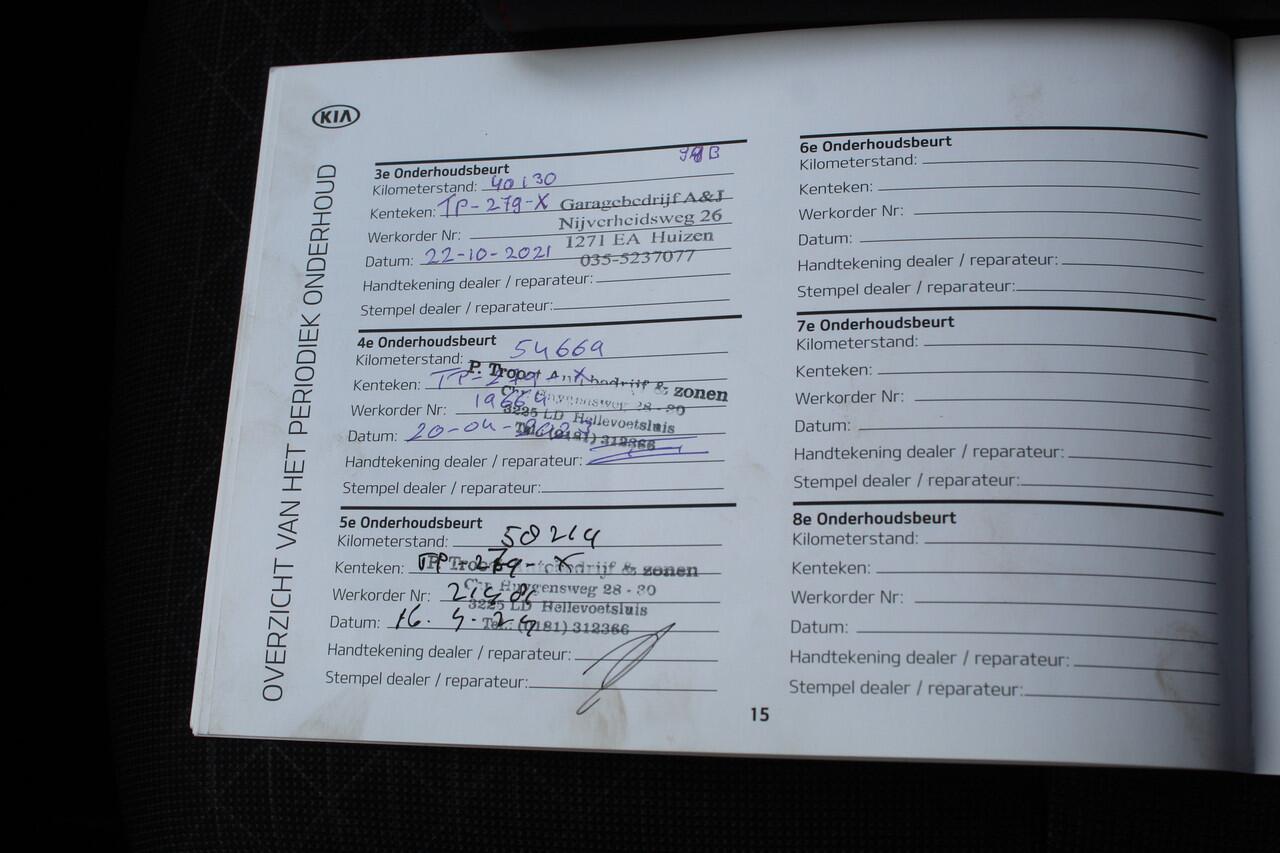 KIA
OVERZICHT VAN HET PERIODIEK ONDERHOUD
3e Onderhoudsbeurt
Kilometerstand: 40130
Kenteken: TP-279-X
Garagebedrijf A&J
Nijverheidsweg 26
Werkorder Nr:
1271 EA Huizen
Datum: 22-10-2021
035-5237077
Handtekening dealer / reparateur:
Stempel dealer / reparateur:
4e Onderhoudsbeurt
Kilometerstand: 54669
P. Troost Autobedrijf & zonen
Kenteken: TP-279-X
Chr. Huygensweg 28 - 30
Werkorder Nr: 19664
3225 LD Hellevoetsluis
Datum: 20-04-2023
Tel.: (0181) 312366
Handtekening dealer / reparateur:
Stempel dealer / reparateur:
5e Onderhoudsbeurt
Kilometerstand: 58214
Kenteken: TP-279-X
P. Troost Autobedrijf & zonen
Chr. Huygensweg 28 - 30
Werkorder Nr:
3225 LD Hellevoetsluis
Datum: 16. 4. 24
Tel.: (0181) 312366
Handtekening dealer / reparateur:
Stempel dealer / reparateur:
6e Onderhoudsbeurt
Kilometerstand:
Kenteken:
Werkorder Nr:
Datum:
Handtekening dealer / reparateur:
Stempel dealer / reparateur:
7e Onderhoudsbeurt
Kilometerstand:
Kenteken:
Werkorder Nr:
Datum:
Handtekening dealer / reparateur:
Stempel dealer / reparateur:
8e Onderhoudsbeurt
Kilometerstand:
Kenteken:
Werkorder Nr:
Datum:
Handtekening dealer / reparateur:
Stempel dealer / reparateur:
15